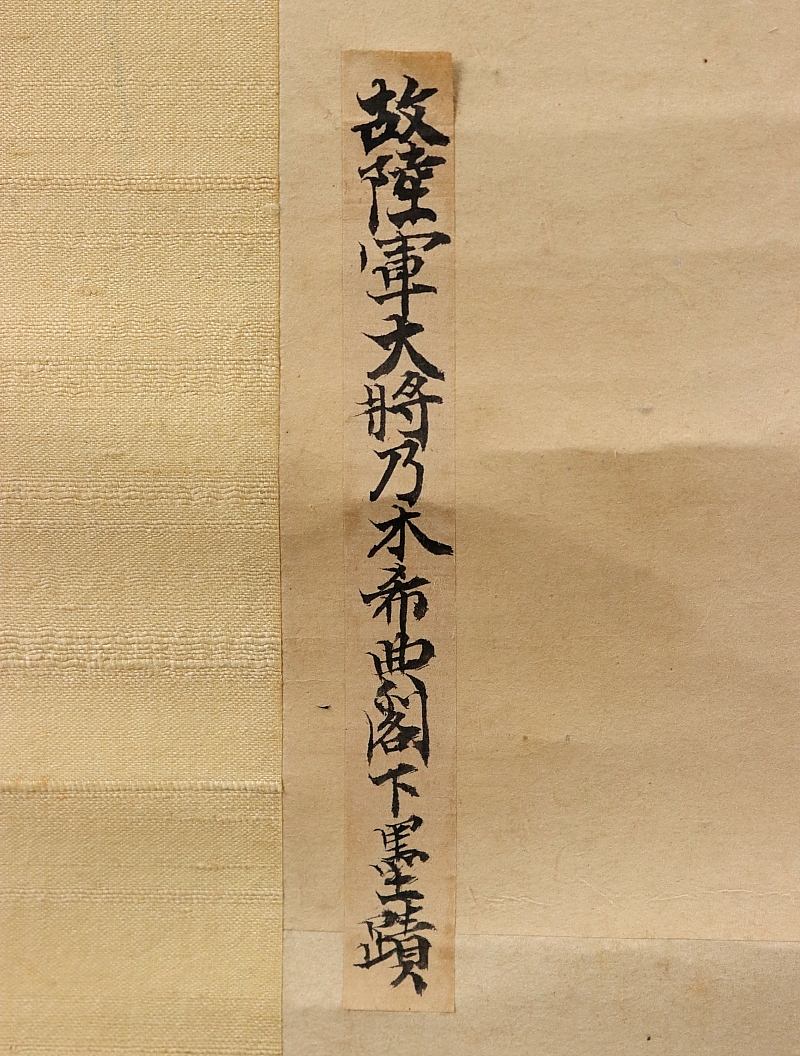 故陸軍大將乃木希典閣下墨蹟